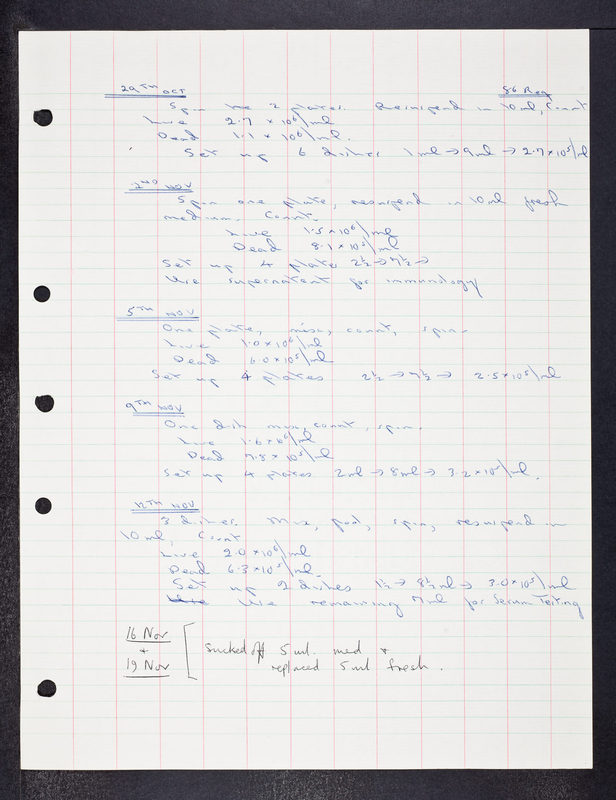 29TH OCT
Spin the 2 plates. Resuspend in 10ml, Count
Live 2.7 x 10⁶/ml
Dead 1.1 x 10⁶/ml.
Set up 6 dishes 1ml → 9ml → 2.7 x 10⁵/ml
2ND NOV
Spin one plate, resuspend in 10ml fresh
medium. Count.
Live 1.5 x 10⁶/ml
Dead 8.1 x 10⁵/ml
Set up 4 plate 2½ → 7½ →
Use supernatent for immunology
5TH NOV
One plate, mix, count, spin.
Live 1.0 x 10⁶/ml
Dead 6.0 x 10⁵/ml
Set up 4 plates 2½ → 7½ → 2.5 x 10⁵/ml
9TH NOV
One dish mix, count, spin.
Live 1.6 x 10⁶/ml
Dead 7.8 x 10⁵/ml
Set up 4 plates 2ml → 8ml → 3.2 x 10⁵/ml.
12TH NOV
3 dishes. Mix, pool, spin, resuspend in
10ml, Count
Live 2.0 x 10⁶/ml
Dead 6.3 x 10⁵/ml.
Set up 2 dishes 1½ → 8½ml → 3.0 x 10⁵/ml
Use remaining 7ml for Serum Testing
16 Nov
+
19 Nov
sucked off 5ml. med +
replaced 5ml fresh.